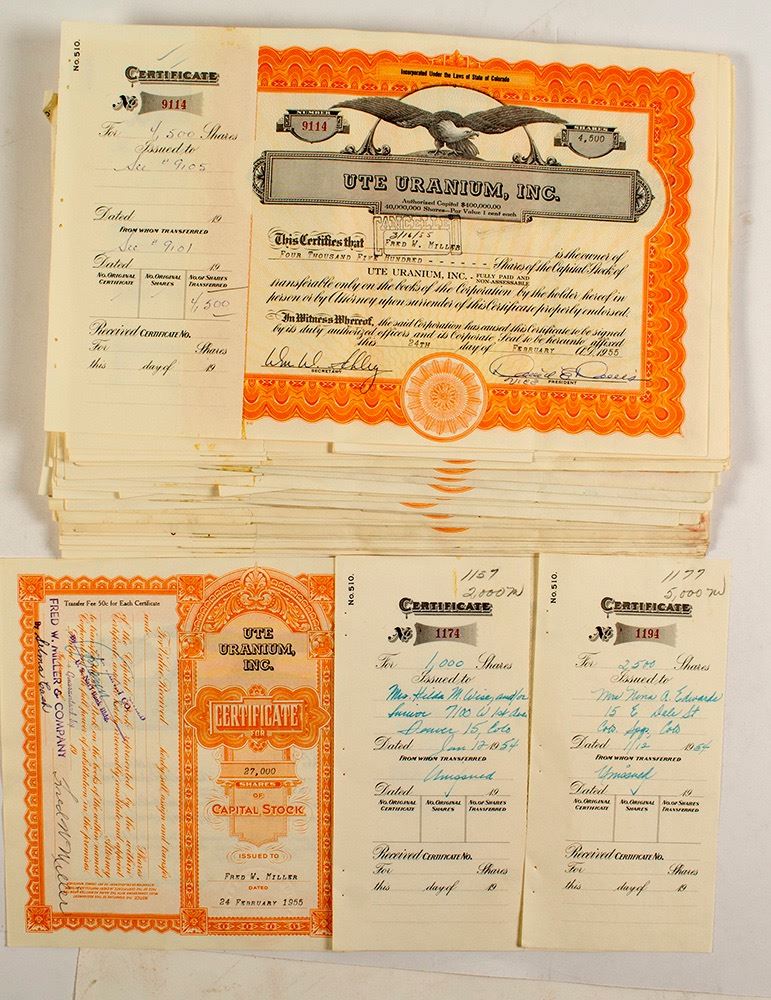 No. 510.
CERTIFICATE
No 9114
For 4,500 Shares
Issued to
See # 9105
Dated 19
FROM WHOM TRANSFERRED
See # 9101
Dated 19
No. ORIGINAL CERTIFICATE No. ORIGINAL SHARES No. OF SHARES TRANSFERRED
4,500
Received CERTIFICATE No.
For Shares
this day of 19
Incorporated Under the Laws of State of Colorado
NUMBER
9114
SHARES
4,500
UTE URANIUM, INC.
Authorized Capital $400,000.00
40,000,000 Shares—Par Value 1 cent each
CANCELLED
3/16/55
This Certifies that FRED W. MILLER is the owner of
FOUR THOUSAND FIVE HUNDRED - - - - - - Shares of the Capital Stock of
UTE URANIUM, INC., FULLY PAID AND NON-ASSESSABLE
transferable only on the books of the Corporation by the holder hereof in
person or by Attorney upon surrender of this Certificate properly endorsed.
In Witness Whereof, the said Corporation has caused this Certificate to be signed
by its duly authorized officers and its Corporate Seal to be hereunto affixed
this 24TH day of FEBRUARY A.D. 1955
SECRETARY
VICE PRESIDENT
Transfer Fee 50c for Each Certificate
For Value Received hereby sell, assign and transfer
unto
Shares
FRED W. MILLER & COMPANY
Fred W Miller
UTE
URANIUM,
INC.
CERTIFICATE
FOR
27,000
SHARES
OF
CAPITAL STOCK
ISSUED TO
FRED W. MILLER
DATED
24 FEBRUARY 1955
No. 510.
1157
2,000
CERTIFICATE
No 1174
For 1,000 Shares
Issued to
Mrs Hilda M. Wise and/or
Junior 7100 W 1st Ave
Denver 15, Colo
Dated Jan 12 1954
FROM WHOM TRANSFERRED
Unissued
Dated 19
No. ORIGINAL CERTIFICATE No. ORIGINAL SHARES No. OF SHARES TRANSFERRED
Received CERTIFICATE No.
For Shares
this day of 19
No. 510.
1177
5,000
CERTIFICATE
No 1194
For 2,500 Shares
Issued to
Mrs Nona A. Edwards
15 E Dale St
Colo Spgs Colo
Dated 1/12 1954
FROM WHOM TRANSFERRED
Unissued
Dated 19
No. ORIGINAL CERTIFICATE No. ORIGINAL SHARES No. OF SHARES TRANSFERRED
Received CERTIFICATE No.
For Shares
this day of 19